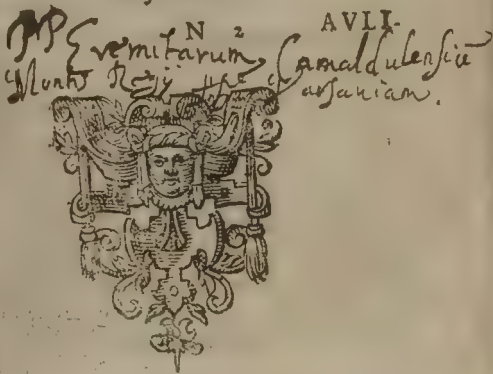 N 2 AVLI-
PP Eremitarum Camaldulensiū
Montis Regij ppe Varsauiam.